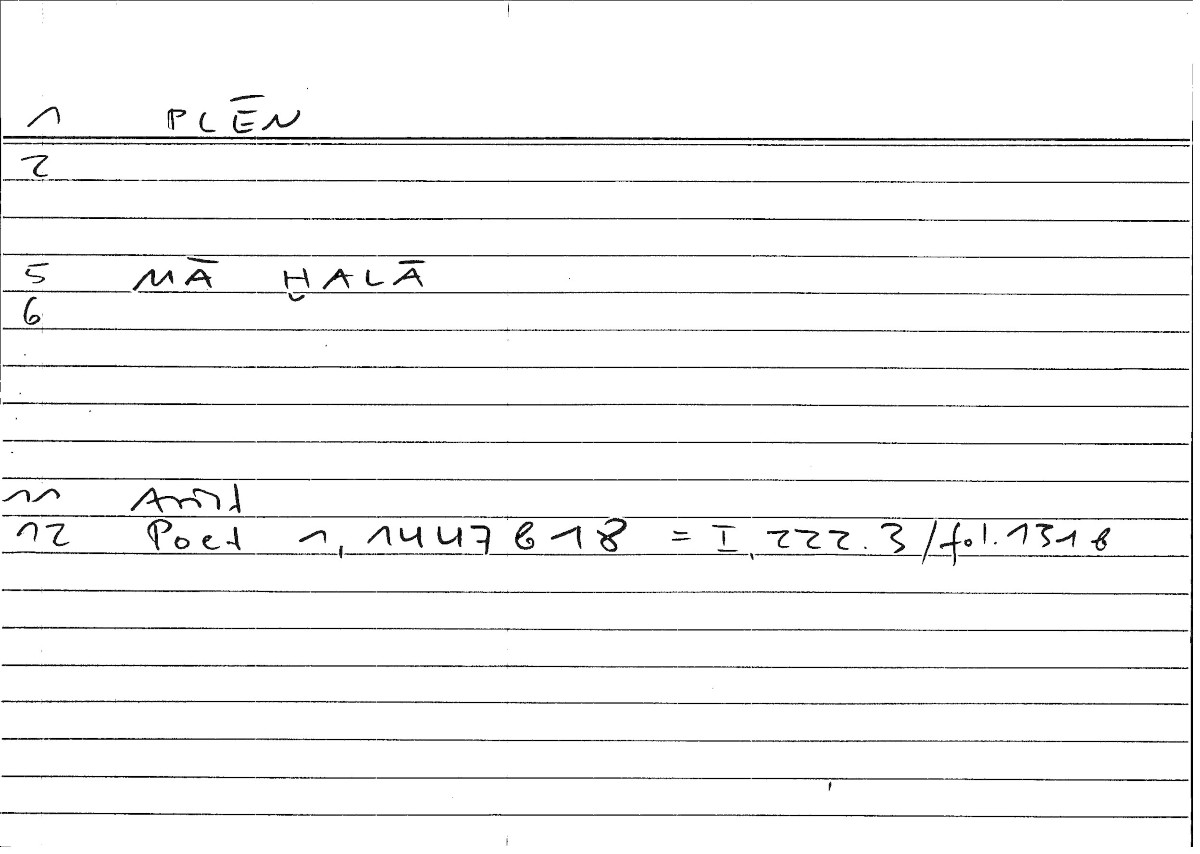 1 PLĒN
2
5 MĀ ḪALĀ
6
11 Arist
12 Poet 1, 1447 b 18 = I, 222.3/fol. 131 b